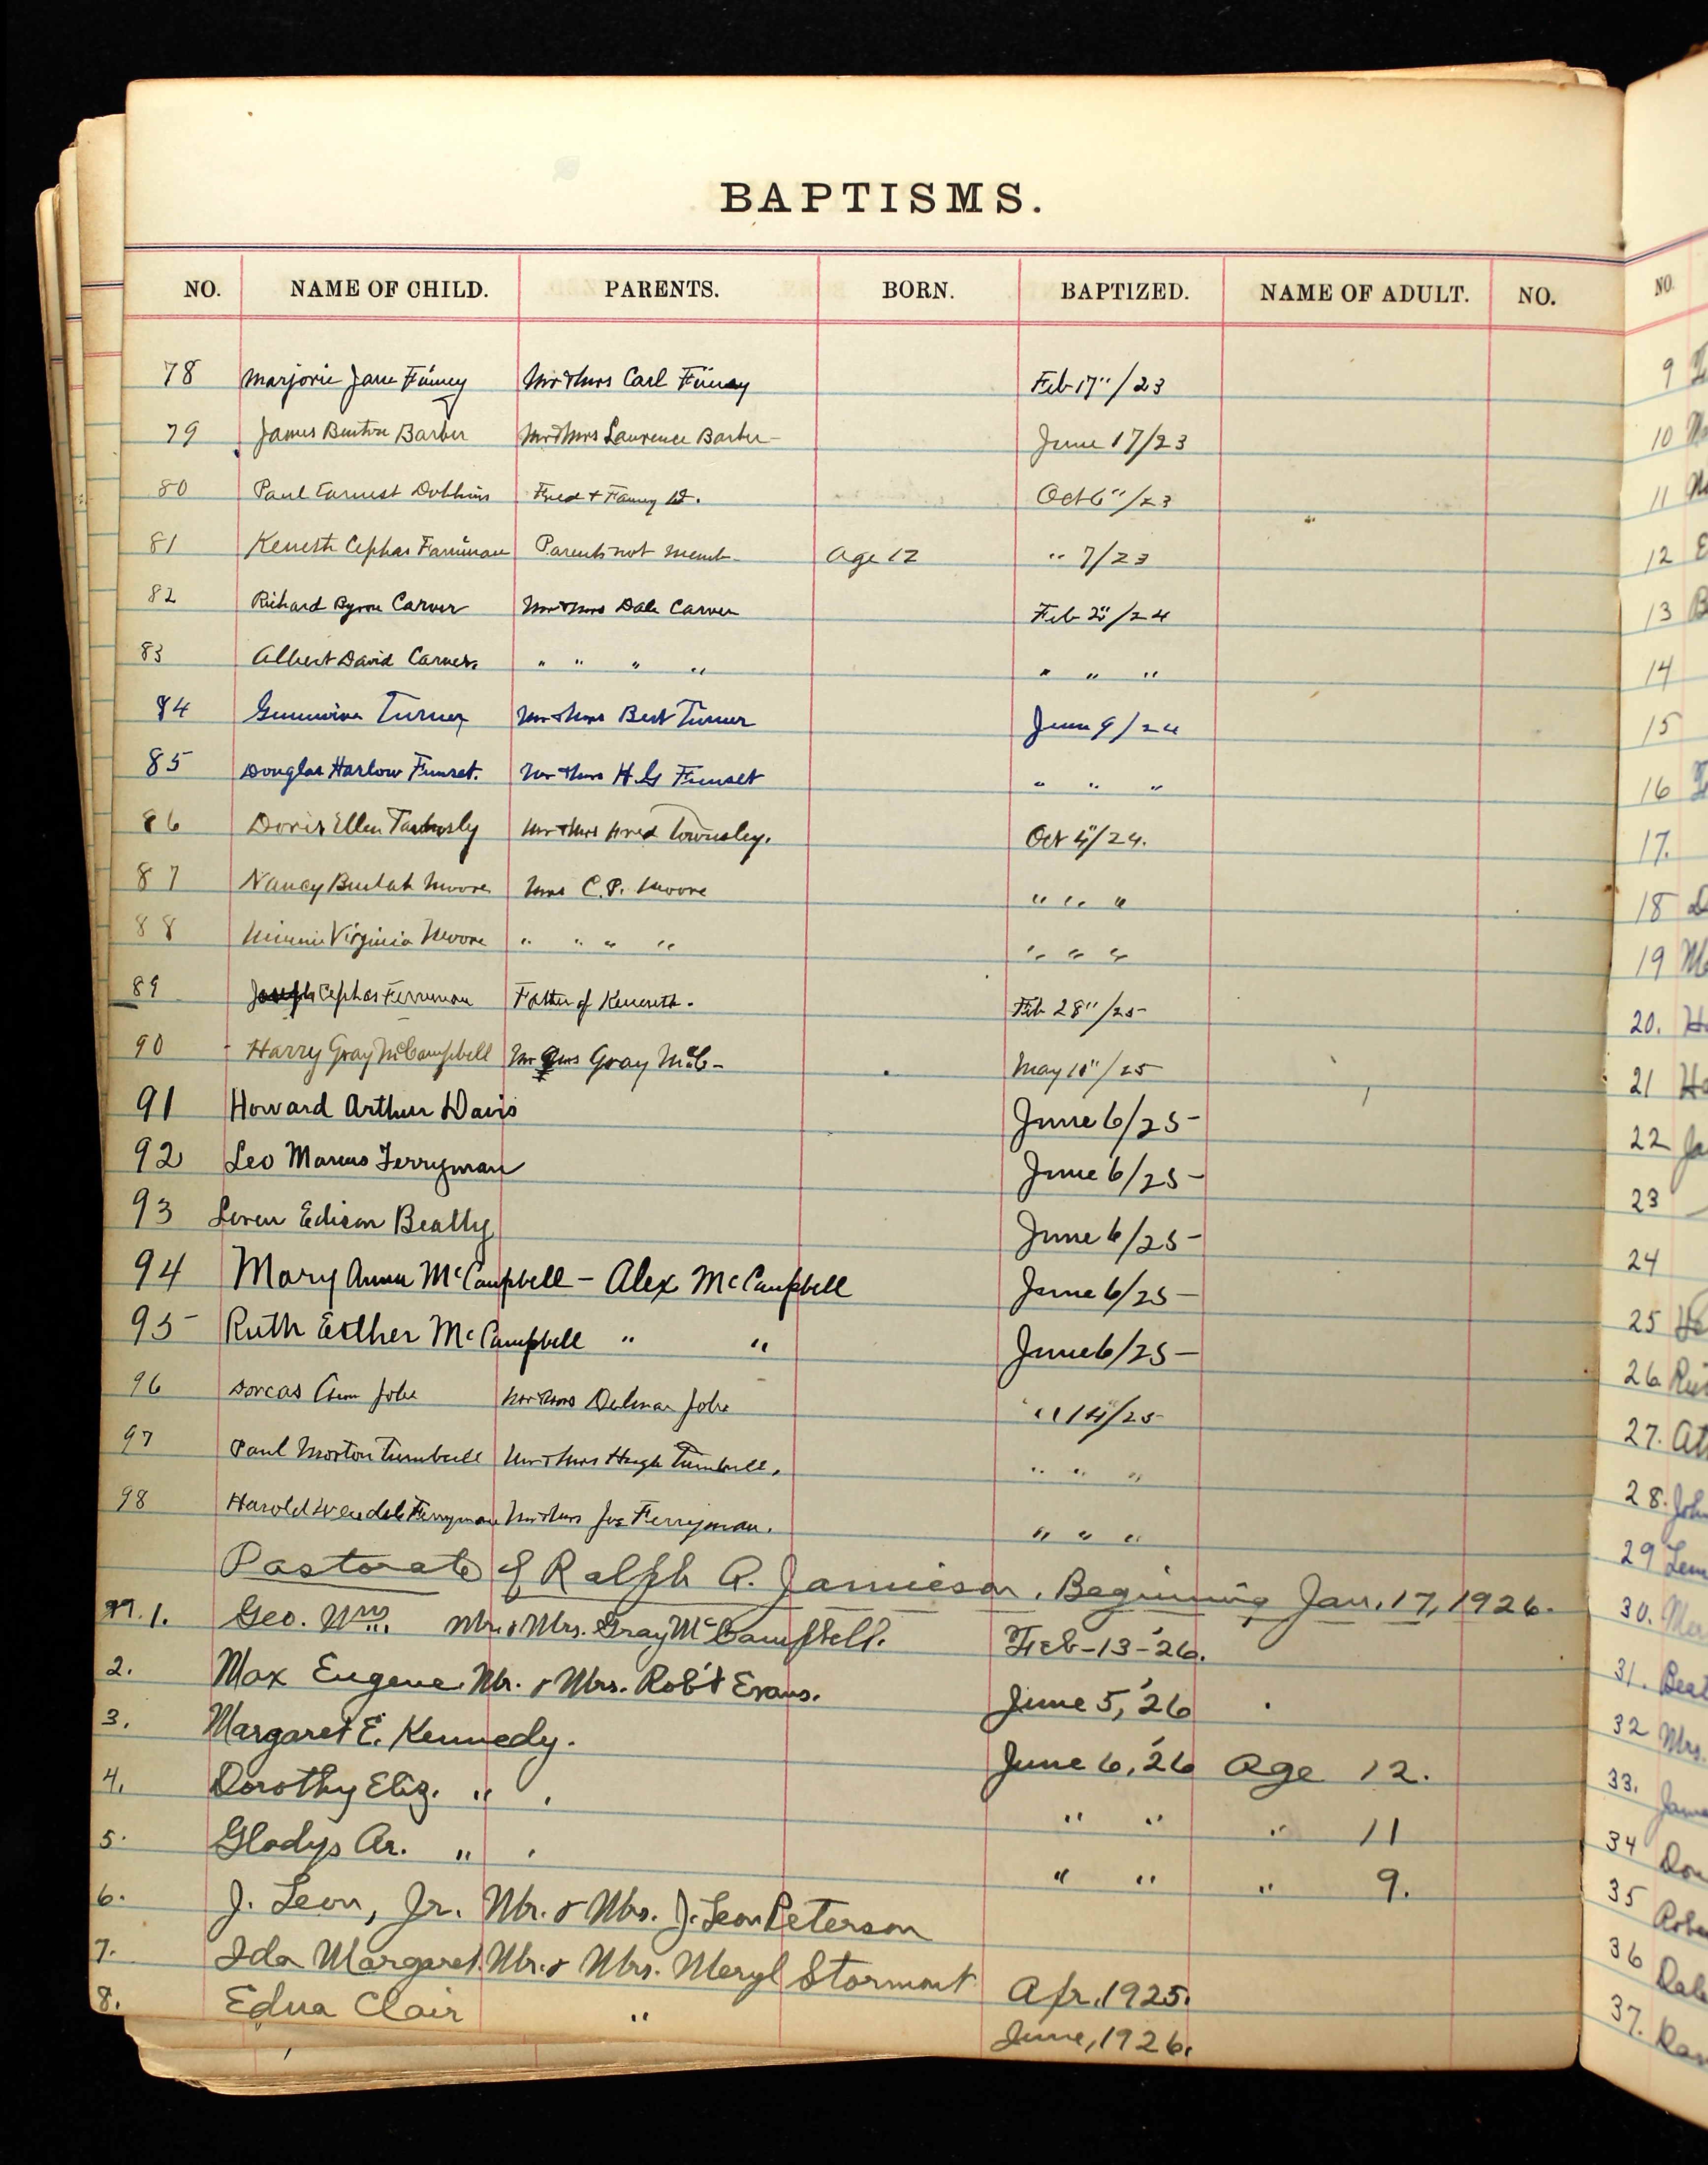 BAPTISMS.
NO. NAME OF CHILD. PARENTS. BORN. BAPTIZED. NAME OF ADULT. NO.
78 Marjorie Jane Finney Mr & Mrs Carl Finney Feb 17"/23
79 James Burton Barber Mr & Mrs Lawrence Barber June 17/23
80 Paul Earnest Dobbins Fred + Fanny D. Oct 6"/23
81 Keneth Cephas Parents not memb- age 12 " 7/23
82 Richard Byron Carver Mr & Mrs Dale Carver Feb 2"/24
83 Albert David Carver " " " " " " "
84 Turner Mr & Mrs Bert Turner June 9/24
85 Douglas Harlow Funset. Mr & Mrs H.G Funset " " "
86 Doris Ellen Mr & Mrs Fred Townsley. Oct 4"/24.
87 Nancy Beulah Moore Mrs C.P. Moore " " "
88 Minnie Virginia Moore " " " " " " "
89 Joseph Cephas Ferryman Father of Kenneth. Feb 28"/25
90 Harry Gray McCampbell Mr & Mrs Gray McC- May 10"/25
91 Howard Arthur Davis June 6/25-
92 Leo Marcus Ferryman June 6/25-
93 Loren Edison Beatty June 6/25-
94 Mary Anna McCampbell - Alex McCampbell June 6/25-
95 Ruth Esther McCampbell " " June 6/25-
96 Dorcas Ann Jobe Mr & Mrs Delmar Jobe " 14"/25
97 Paul Morton Turnbull Mr & Mrs Hugh Turnbull. " " "
98 Harold Wendell Ferryman Mr & Mrs Joe Ferryman. " " "
Pastorate of Ralph A. Jamieson. Beginning Jan. 17, 1926.
99. 1. Geo. Wm. Mr. & Mrs. Gray McCampbell. Feb-13-'26.
2. Max Eugene Mr. & Mrs. Rob't Evans. June 5, '26
3. Margaret E. Kennedy. June 6, '26 Age 12.
4. Dorothy Eliz. " " " " 11
5. Gladys Ar. " " " " 9.
6. J. Leon, Jr. Mr. & Mrs. J. Leon Peterson
7. Ida Margaret. Mr. & Mrs. Meryl Stormont Apr, 1925.
8. Edna Clair " June, 1926.
NO.
9
10
11
12
13
14
15
16
17.
18
19
20.
21
22
23
24
25
26
27.
28.
29
30.
31.
32 Mrs.
33.
34
35
36
37.